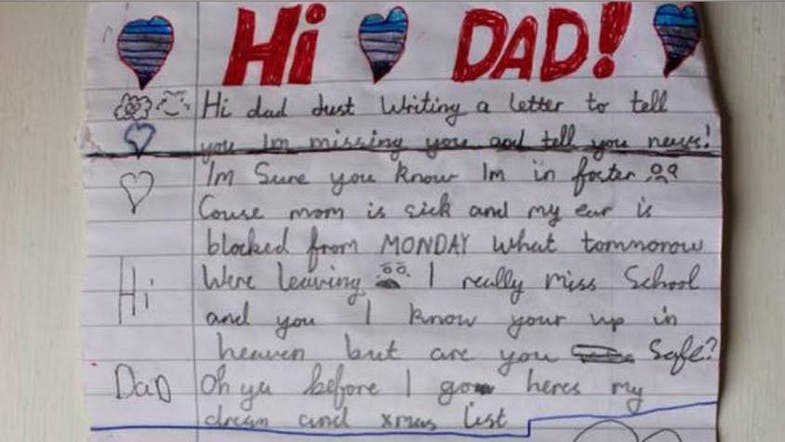 Hi DAD!
Hi dad Just Writing a letter to tell
you Im missing you and tell you news!
Im Sure you know Im in foster
Couse mom is sick and my ear is
blocked from MONDAY What tommorow
Hi Were leaving I really miss School
and you I know your up in
heaven but are you Safe?
DaD Oh ya before I go heres my
dream and xmas list